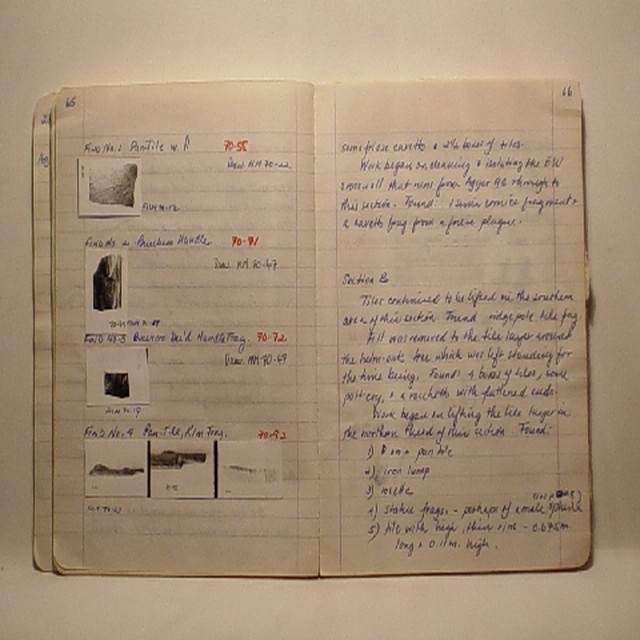 65
Find No. 1 Pan Tile w. A 70-55
Draw. MM 70-22
Find No. 2 Bucchero Handle 70-71
Draw. MM 70-47
Find No. 3 Bucchero Handle Frag. 70-72
Draw. MM 70-49
Find No. 4 Pan-Tile, Rim Frag. 70-92
66
some frieze cavetto & 2½ boxes of tiles.
Work began on cleaning & isolating the EW
cross wall that runs from Agger through to
this section. Found: 1 cornice fragment &
a cavetto frag from a frieze plaque.
Section B
Tiles continued to be lifted in the southern
area of this section. Found ridgepole tile frag
Fill was removed to the tile layer around
the holm-oak tree which was left standing for
the time being. Found: boxes of tiles, some
pottery, & a rocchetto with flattened ends.
Work began on lifting the tile layer in
the northern third of this section. Found:
1) on a pan tile
2) iron lump
3) rosette
4) statue frags. - perhaps of a male sphinx
5) tile with high, thin rim - 0.675m
long & 0.11m. high.